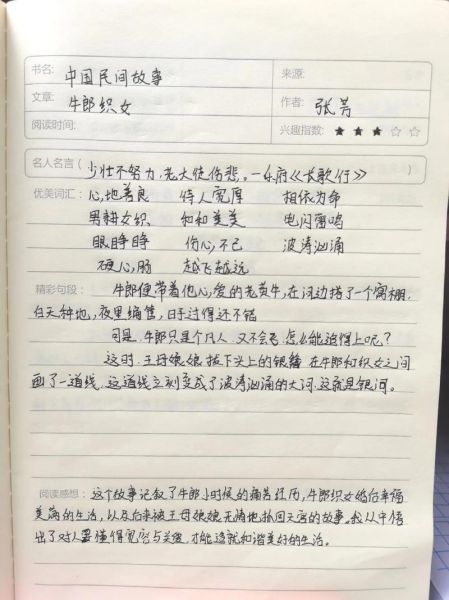 书名: 中国民间故事 来源:
文章: 牛郎织女 作者: 张芳
阅读时间: 兴趣指数: ★ ★ ★ ☆ ☆
名人名言 ( 少壮不努力,老大徒伤悲。一乐府《长歌行》 )
优美词汇: 心地善良 待人宽厚 相依为命
男耕女织 和和美美 电闪雷鸣
眼睁睁 伤心不已 波涛汹涌
硬心肠 越飞越远
精彩句段: 牛郎便带着他心爱的老黄牛,在河边搭了一个窝棚,
白天种地,夜里编筐,日子过得还不错
可是,牛郎只是个凡人,又不会飞,怎么能追得上呢?
这时,王母娘娘拔下头上的银簪,在牛郎和织女之间
画了一道线,这道线立刻变成了波涛汹涌的大河,这就是银河。
阅读感想: 这个故事记叙了牛郎小时候的痛苦经历,牛郎织女婚后幸福
美满的生活,以及后来被王母娘娘无情地抓回天宫的故事。我从中悟
出了对人要懂得宽容与关爱,才能造就和谐美好的生活。